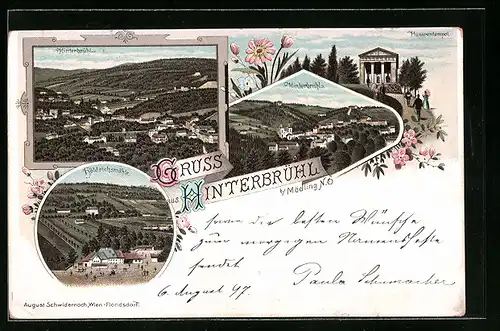 Hinterbrühl
Husarentempel
Hinterbrühl
Höldrichsmühle
GRUSS
aus HINTERBRÜHL
b/ Mödling N.Ö.
die besten Wünsche
zum morgigen Namensfeste
sendet
Paula Schumacher
6. August 97.
August Schwidernoch, Wien-Floridsdorf.